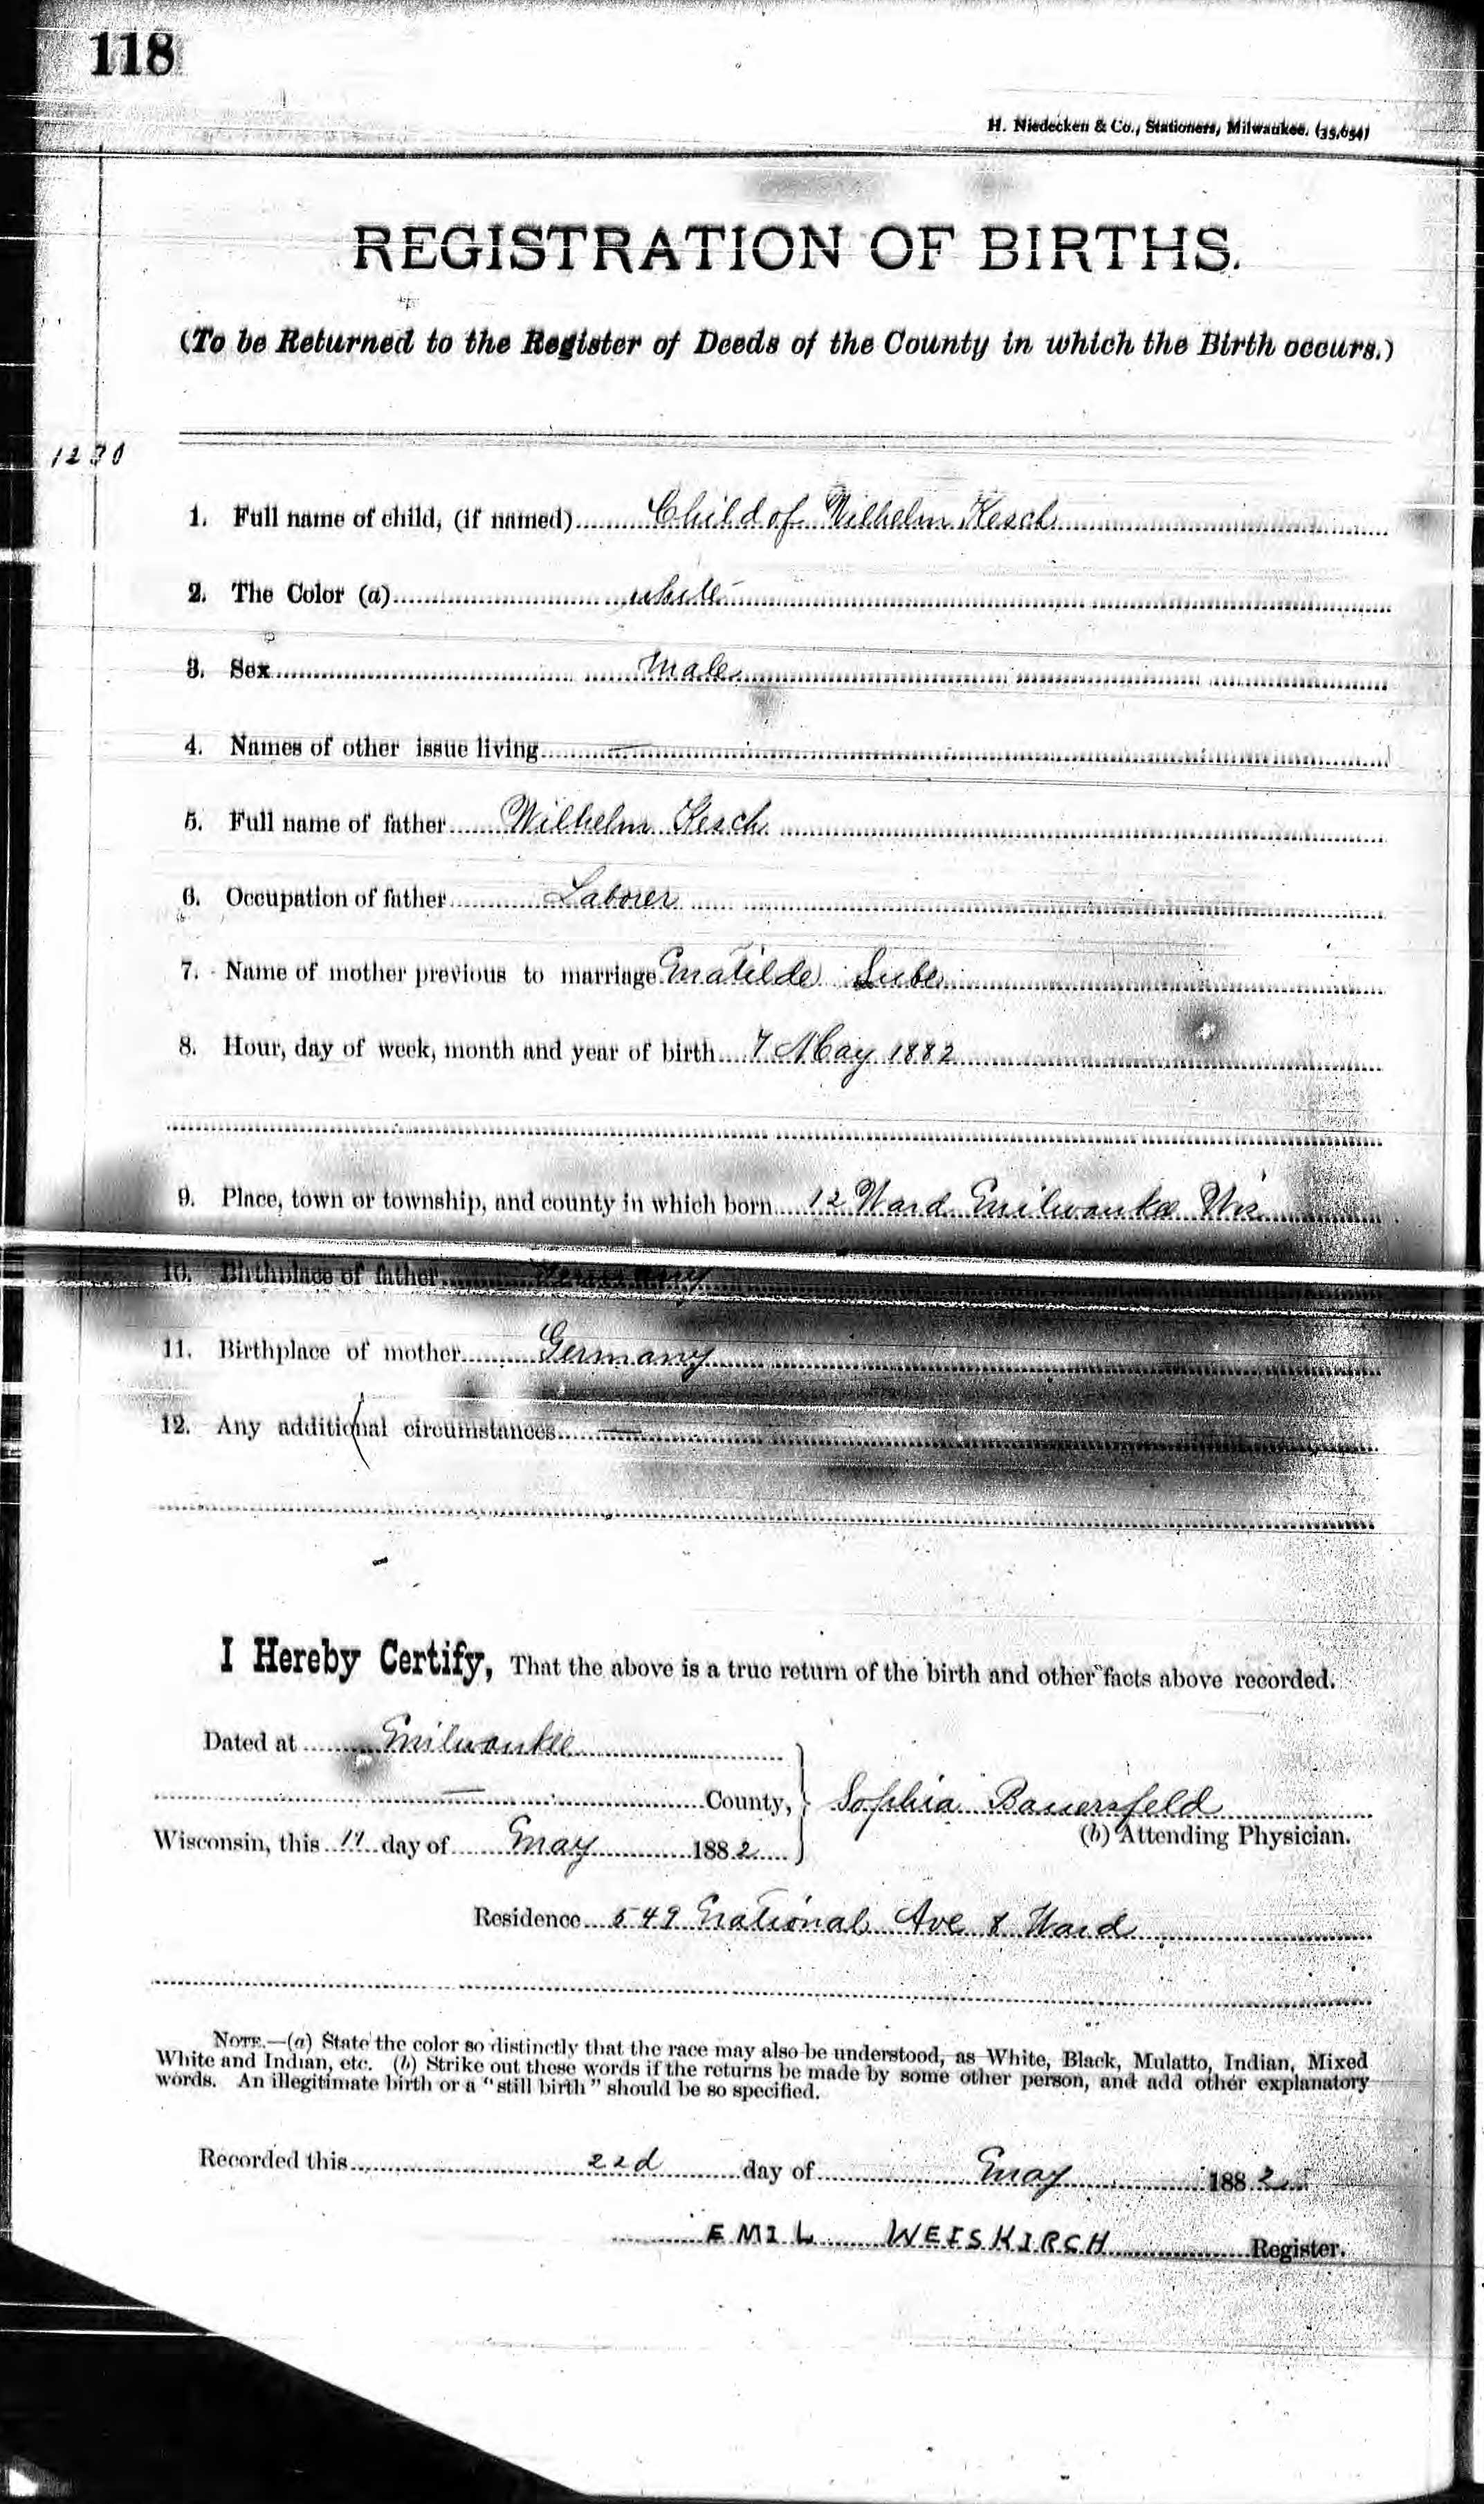 118
H. Niedecken & Co., Stationers, Milwaukee. (35,654)
REGISTRATION OF BIRTHS.
(To be Returned to the Register of Deeds of the County in which the Birth occurs.)
1. Full name of child, (if named) Child of Wilhelm Kesch
2. The Color (a) white
3. Sex Male
4. Names of other issue living —
5. Full name of father Wilhelm Kesch
6. Occupation of father Laborer
7. Name of mother previous to marriage Matilde
8. Hour, day of week, month and year of birth 7 May 1882
9. Place, town or township, and county in which born 12 Ward Milwaukee Wis
10. Birthplace of father Germany
11. Birthplace of mother Germany
12. Any additional circumstances —
I Hereby Certify, That the above is a true return of the birth and other facts above recorded.
Dated at Milwaukee
— County, } Sophia Bauersfeld
(b) Attending Physician.
Wisconsin, this day of May 1882
Residence 549 National Ave 8 Ward
NOTE.—(a) State the color so distinctly that the race may also be understood, as White, Black, Mulatto, Indian, Mixed
White and Indian, etc. (b) Strike out these words if the returns be made by some other person, and add other explanatory
words. An illegitimate birth or a "still birth" should be so specified.
Recorded this 22d day of May 1882
EMIL WEISKIRCH Register.